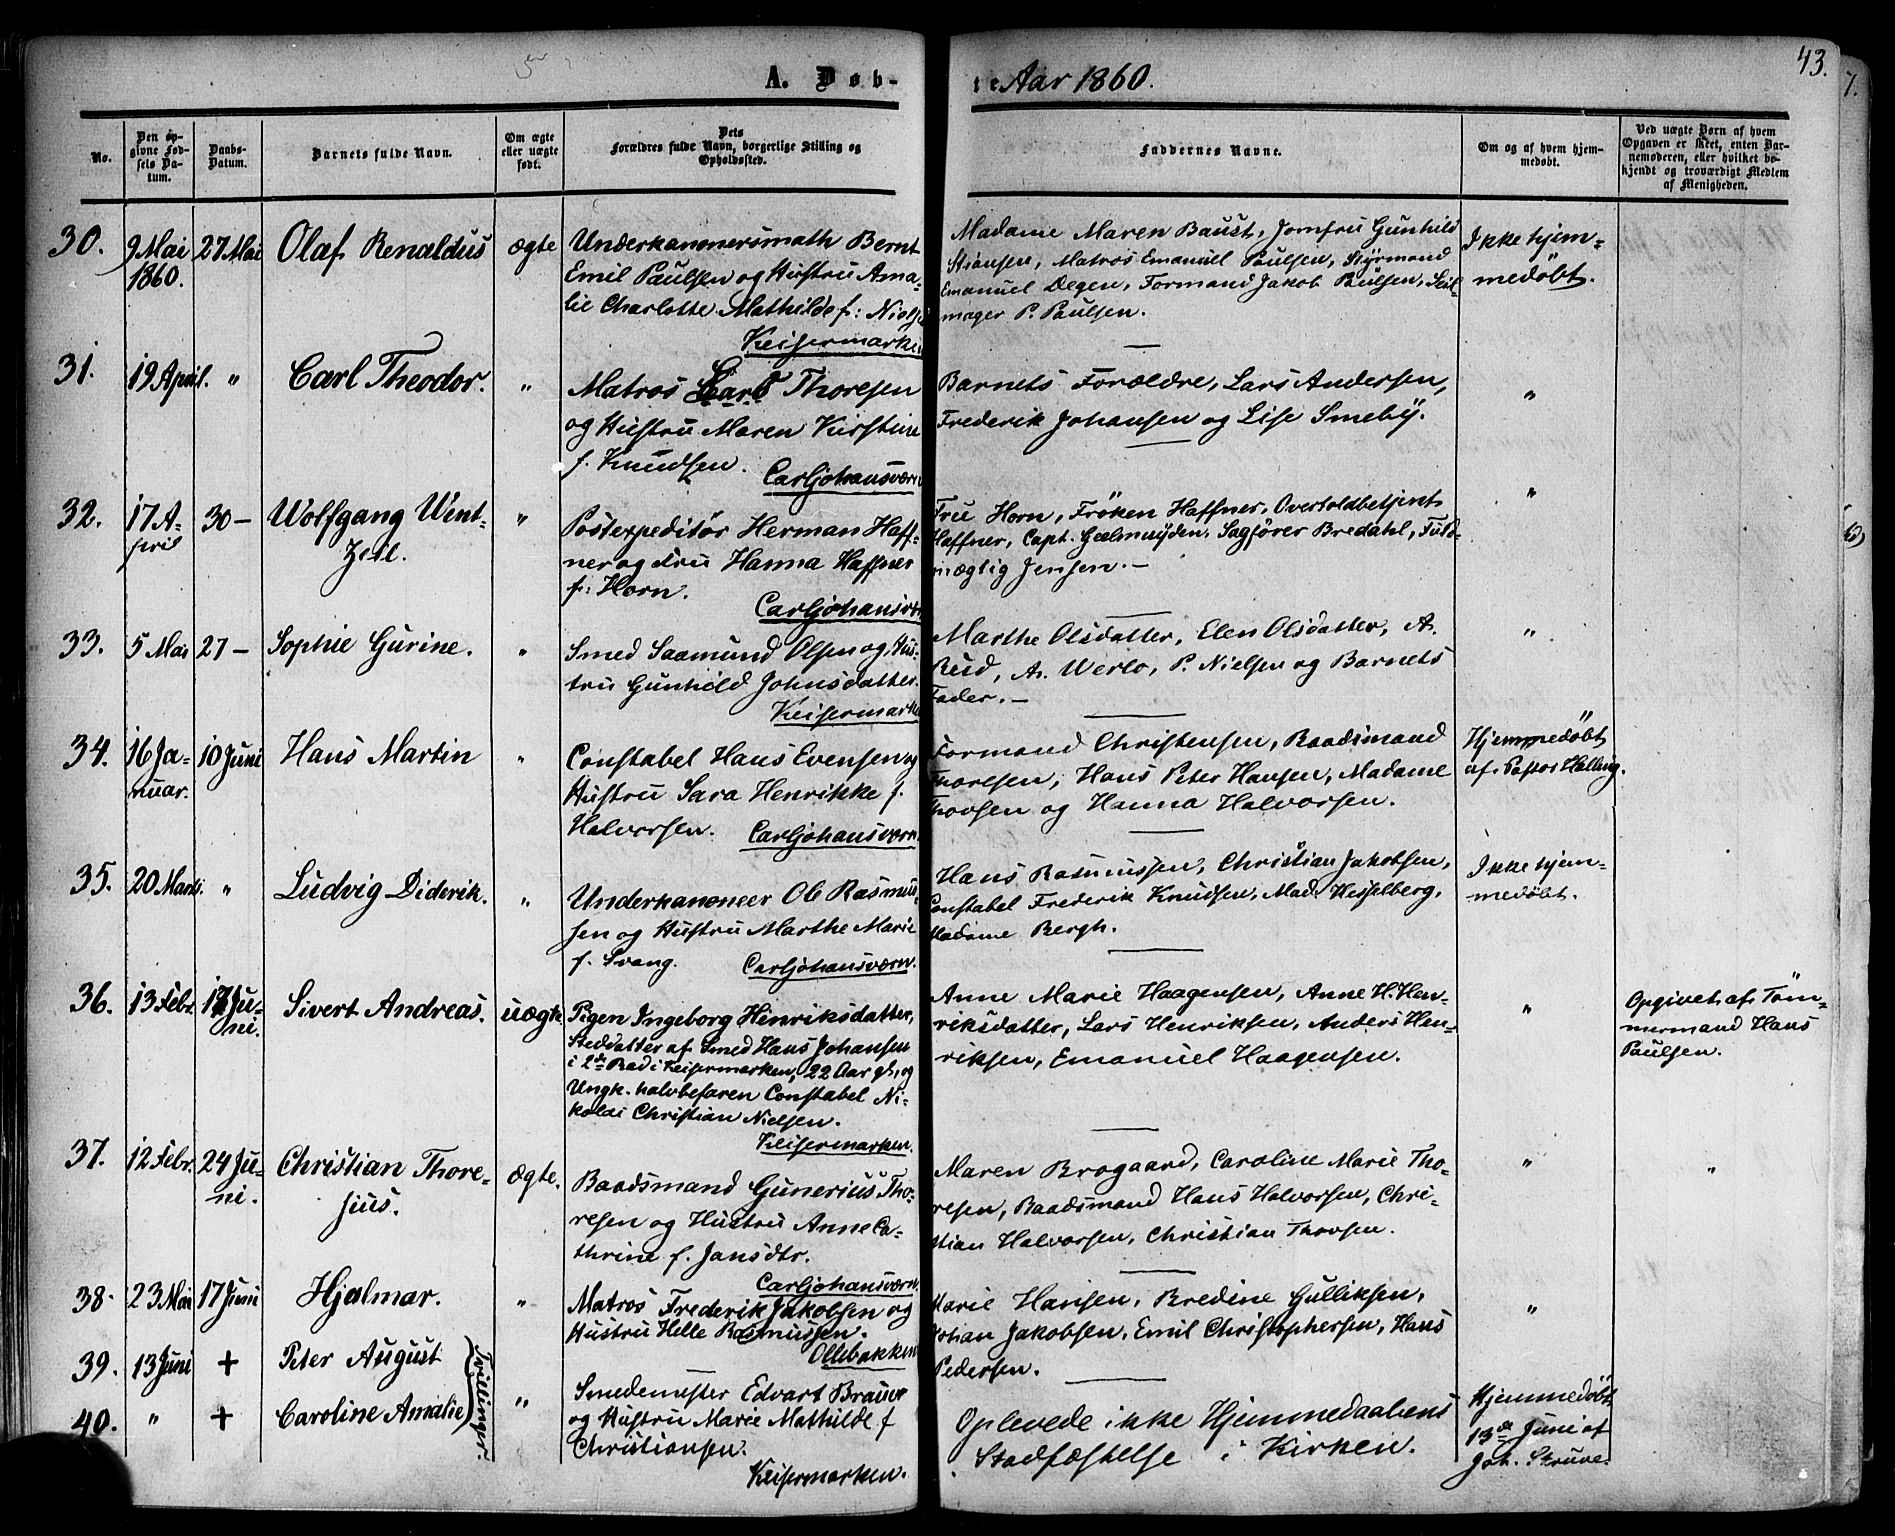 43.
A. Døb-
te Aar 1860.
No.
Den op-
givne Fød-
sels Da-
tum.
Daabs-
Datum.
Barnets fulde Navn.
Om ægte
eller uægte
født.
Dets
Forældres fulde Navn, borgerlige Stilling og
Opholdssted.
Faddernes Navne.
Om og af hvem hjem-
medøbt.
Ved uægte Børn af hvem
Opgaven er skeet, enten Bar-
nemoderen, eller hvilket be-
kjendt og troværdigt Medlem
af Menigheden.
30.
9 Mai
1860.
27 Mai
Olaf Renaldus
ægte
Underkanonersmath Bernt
Emil Paulsen og Hustru Ama-
lie Charlotte Mathilde f: Niels
Keisermarken
Madame Maren Baust, Jomfru Gunhild
Stiansen, Matros Emanuel Paulsen, Styrmand
Emanuel Degen, Formand Jakob Paulsen, Seil-
mager P. Paulsen.
Ikke hjem-
medøbt.
31.
19 April.
"
Carl Theodor.
"
Matros Lars Thoresen
og Hustru Maren Kirstine
f. Knudsen.
Carljohansværn
Barnets Forældre, Lars Andersen,
Frederik Johansen og Lise Smeby.
"
32.
17 A-
pril
30 -
Wolfgang Went-
zell.
"
Postexpeditør Herman Haff-
ner og Fru Hanna Haffner
f: Horn.
Carljohansværn
Fru Horn, Frøken Haffner, Overtoldbetjent
Haffner, Capt. Geelmuyden, Sagfører Bredahl, Fuld-
mægtig Jensen. -
"
33.
5 Mai
27 -
Sophie Gurine.
"
Smed Saamund Olsen og Hus-
tru Gunhild Johnsdatter.
Keisermarken
Marthe Olsdatter, Elen Olsdatter, A.
Rud, A. Werlo, P. Nielsen og Barnets
Fader. -
"
34.
16 Ja-
nuar.
10 Juni
Hans Martin
"
Constabel Hans Evensen og
Hustru Sara Henrikke f.
Halvorsen.
Carljohansværn
Formand Christensen, Baadsmand
Thoresen, Hans Peter Hansen, Madame
Thovsen og Hanna Halvorsen.
Hjemmedøbt
af Pastor Halling.
35.
20 Marts.
"
Ludvig Diderik.
"
Underkanoneer Ole Rasmus-
sen og Hustru Marthe Marie
f. Svang.
Carljohansværn.
Hans Rasmussen, Christian Jakobsen,
Constabel Frederik Knudsen, Mad. Hesselberg,
Madame Bergh.
Ikke hjem-
medøbt.
36.
13 Febr.
17 Ju-
ni.
Sivert Andreas.
uægte
Pigen Ingeborg Hinriksdatter,
Steddatter af Smed Hans Johansen
i 2de Rad i Keisermarken, 22 Aar gl., og
Ungk. halvbefaren Constabel Ni-
kolai Christian Nielsen.
Keisermarken.
Anne Marie Haagensen, Anne H. Hen-
riksdatter, Lars Henriksen, Anders Hen-
riksen, Emanuel Haagensen.
"
Opgivet af Tøm-
mermand Hans
Paulsen.
37.
12 Febr.
24 Ju-
ni.
Christian Thore-
sius.
ægte.
Baadsmand Gunerius Tho-
resen og Hustru Anne Ca-
thrine f. Jansdtr.
Carljohansværn
Maren Brogaard, Caroline Marie Tho-
resen, Baadsmand Hans Halvorsen, Chri-
stian Halvorsen, Christian Thovsen.
"
"
38.
23 Mai
17 Juni
Hjalmar.
"
Matros Frederik Jakobsen og
Hustru Helle Rasmussen.
Ollebakken
Marie Hansen, Bredine Gulliksen,
Johan Jakobsen, Emil Christophersen, Hans
Pedersen.
"
39.
13 Juni
+
Peter August
40.
"
+
Caroline Amalie
Tvillinger.
"
Smedemester Edvart Brauer
og Hustru Marie Mathilde f
Christiansen.
Keisermarken.
Oplevede ikke Hjemmedaabens
Stadfæstelse i Kirken.
Hjemmedøbt
13de Juni af
Joh. Struve.